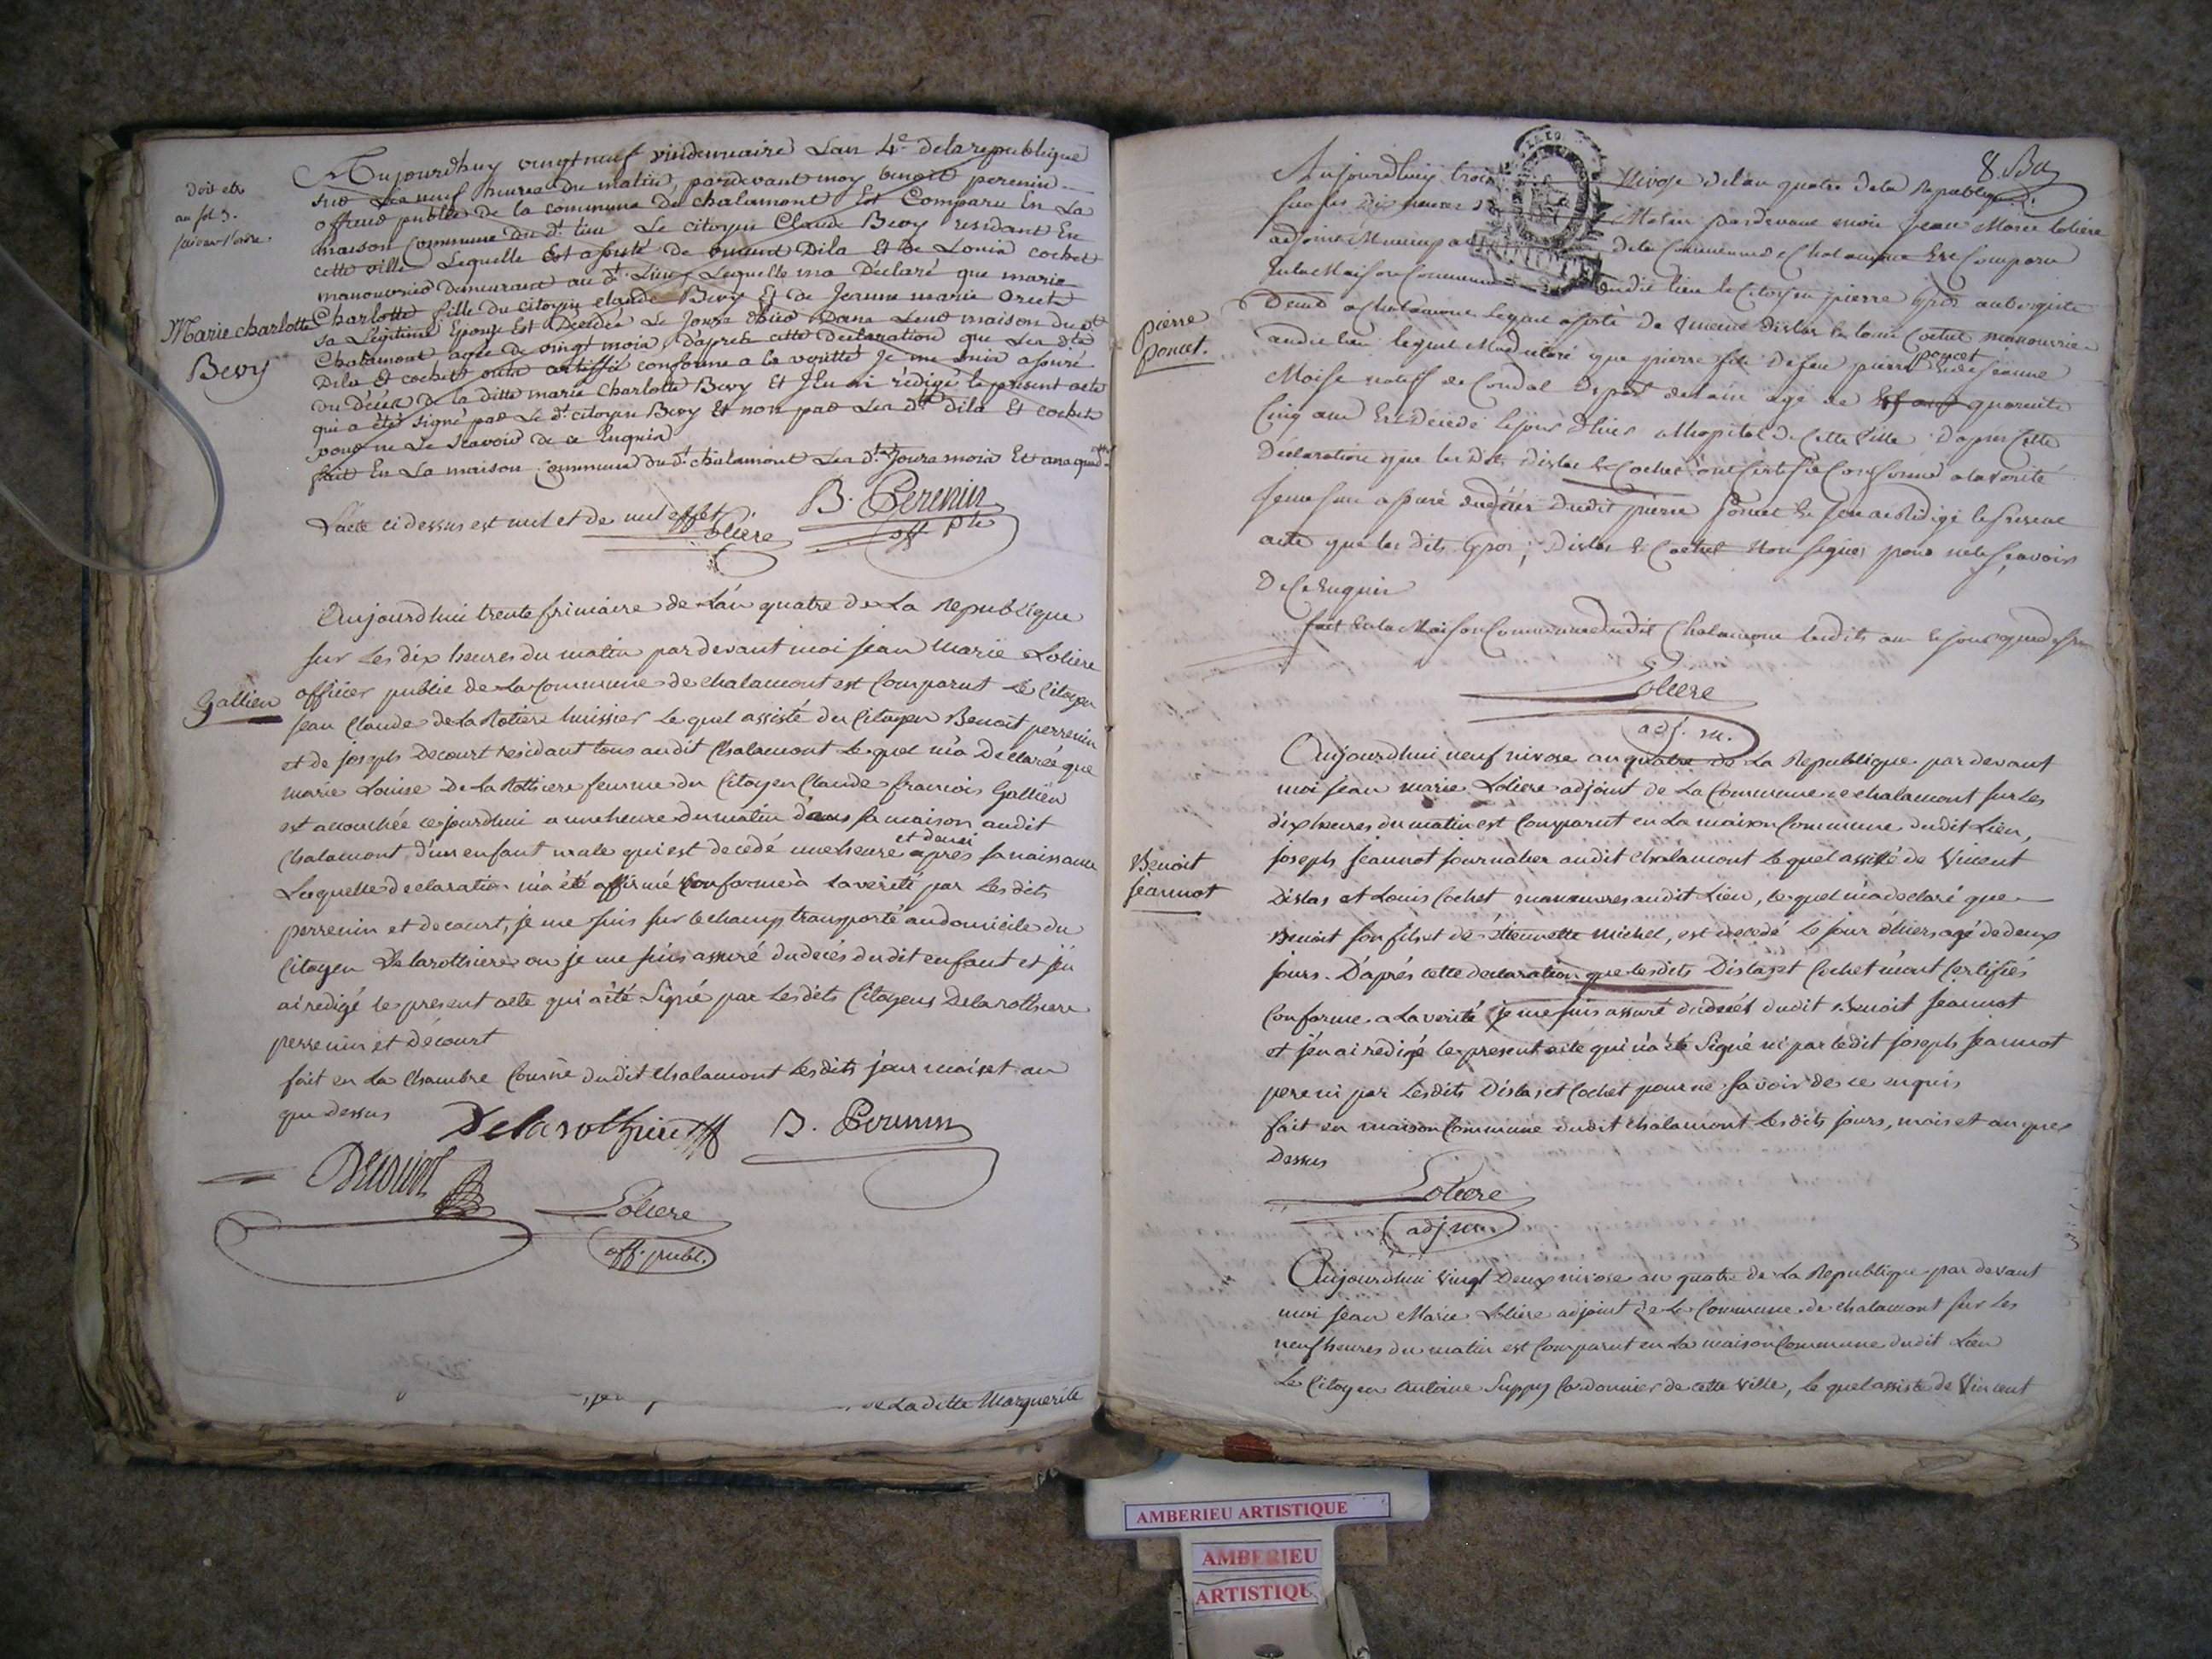 Doit etre
au fol 3.
Aujourdhuy vingt neuf vindemiaire Lan 4e. de la republique
sur Les neuf heures du matin, pardevant moy benoit perenin
officié public de la commune de chalamont Est Comparu En La
maison Commune du dt. lieu Le citoyen Claude Bevy residant En
cette ville Lequelle Est assisté De vincent Dila Et De Louis cochet
manouvrié demeurant au dt. Lieu Lequelle ma Déclaré que marie
Marie charlotte
Bevy
Charlotte fille du citoyen claude Bevy Et de Jeanne marie
sa Légitime Epouze Est Décédée Le Jours d'hier Dans Leur maison du dt
Chalamont agée de vingt mois, d'après cette declaration que Les dts
Dila Et cochet onts certiffié conforme a la verittée Je me suis assuré
du décès De la ditte marie Charlotte Bevy Et J'En ai rédigé le présent acte
qui a été signé par Le dt. citoyen Bevy Et non par Les dts dila Et cochet
pour ne Le sçavoir de ce Enquis
fait En La maison Commune du dt. chalamont Les dts Jours mois Et ans que
L'acte ci dessus est nul et de nul effet.
Loliere
B. Perenin
off ple
Aujourdhui trente frimaire de L'an quatre de La republique
sur Les dix heures du matin par devant moi jean Marie Loliere
Gallien
officier public de La Commune de chalamont est Comparut Le Citoyen
jean Claude de la Rotiere huissier Le quel assisté du Citoyen Benoit perrenin
et de joseph Decourt residant tous audit Chalamont Le quel m'a Déllarée que
marie Louise De la Rottiere femme du Citoyen Claude francois Gallien
est accouchée ce jourdhui a une heure du matin dans sa maison audit
Chalamont, d'un enfant male qui est decedé une heure et demi après sa naissance
Laquelle declaration m'a été affirmé Conforme à la verité par Les dits
perrenin et decourt, je me suis sur le champ transporté au domicile du
Citoyen Delarothiere ou je me suis assuré du decés dudit enfant et j'en
ai redigé le present acte qui a été Signé par Les dits Citoyens Delarothiere
perrenin et Décourt
fait en La Chambre Comne dudit Chalamont Les dits jour mois et an
que Dessus
Delarothiere B. Perenin
Decourt
Loliere
off. publ.
de La ditte Marguerite
8.
Aujourdhuy trois Nivose de lan quatre dela Republique
sur les Dix heures du Matin pardevant moi jean Marie loliere
adjoint Municipal dela Commune de Chalamont Est Comparu
Enla Maison Commune dudit lieu le Citoyen pierre Gros aubergiste
pierre
poncet.
Demt a Chalamont Lequel assisté De Vincent Dislas Et louis Cochet manouvrier
audit lieu lequel Ma declaré que pierre fils De feu pierre poncet Et de jeanne
Moise natif de Condal Depart de lain agé de quarente
Cinq ans Est Décédé le jour d'hier a lhopital De Cette Ville Dapres Cette
Déclaration que les Dits Dislas & Cochet ont Certifié Conforme a la Verité
Je me suis assuré du décès Dudit pierre poncet Et J'en ai Rédigé le present
acte que les dits Gros, Dislas & Cochet Non signés pour ne le Sçavoir
De Ce Enquis
fait En la Maison Commune dudit Chalamont lesdits an & jour que dessus
Loliere
adj. m.
Aujourdhui neuf nivose an quatre de La Republique par devant
moi jean marie Loliere adjoint de La Commune de chalamont sur Les
dix heures du matin est Comparut en La maison Commune dudit Lieu,
Benoit
Jeannot
joseph jeannot journalier audit Chalamont Le quel assisté de Vincent
Dislas et Louis Cochet manœuvres audit Lieu, le quel m'a declaré que
Benoit son fils et de étiennette Michel, est decedé Le jour d'hiers agé de deux
jours. D'aprés cette declaration que les dits Dislas et Cochet m'ont Certifiés
Conforme a La verité je me suis assuré du decés dudit Benoit Jeannot
et j'en ai redigé le present acte qui n'a été Signé ni par le dit joseph Jeannot
pere ni par Les dits Dislas et Cochet pour ne savoir de ce enquis
fait en maison Commune dudit Chalamont Les dits jours, mois et an que
Dessus
Loliere
adj. m.
Aujourdhui Vingt Deux nivose an quatre de La Republique par devant
moi jean Marie Loliere adjoint de La Commune de Chalamont sur Les
neuf heures du matin est Comparut en La maison Commune dudit Lieu
Le Citoyen Antoine Suppy Cordonnier de cette Ville, Le quel assisté de Vincent
AMBERIEU ARTISTIQUE
AMBERIEU
ARTISTIQU